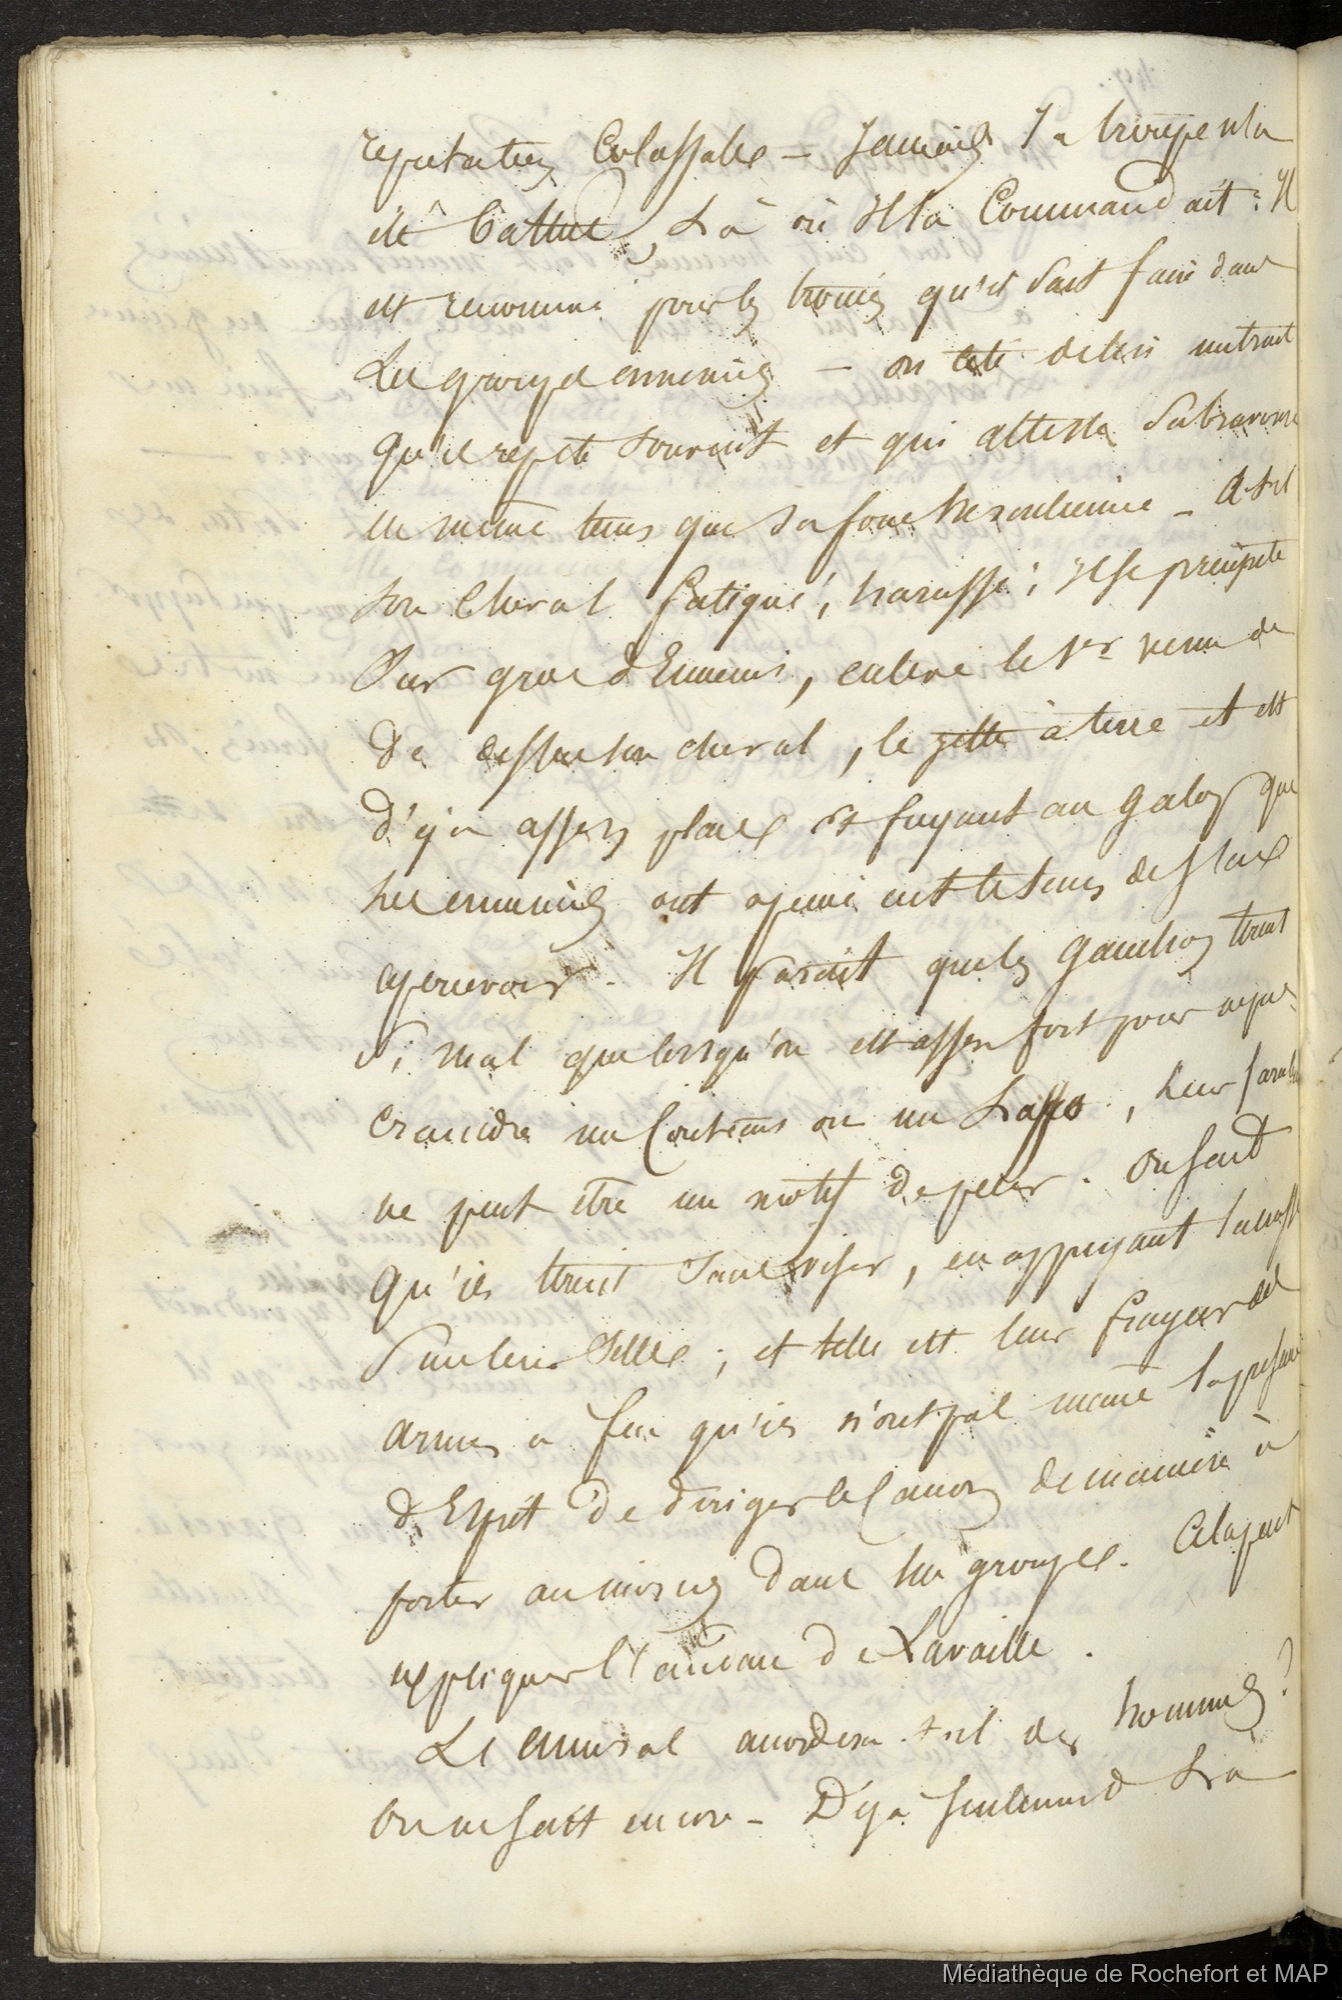 reputation Colossale – Jamais sa troupe n'a
été battue, Là où Il la Commandait : Il
est renommé pour les trouées qu'il sait faire dans
Les groupes ennemies – on cite de lui un trait
qu'il repete souvent et qui atteste sa bravoure
en même tems que sa force herculienne – A-t-il
son cheval fatigué, harassé ; Il se precipite
Sur gros d'Ennemis, enleve le 1er venu de
De dessus son cheval, le jette à terre et est
D'eja assez place et fuyant au galop que
les ennemies ont a peine eut le tems de s'en
apercevoir. Il parait que les Gauchos tirent
Si mal que lorsqu'on est assez fort pour ne pas
craindre un Couteau ou un Lasso, leur
ne peut être un motif de peur. On sait
Qu'ils tirent sans viser, en appuyant la crosse
Sur leur selle ; et telle est leur frayeur des
armes a feu qu'ils n'ont pas même la presence
d'Esprit de diriger le Canon de maniere à
porter au moins dans les groupes. Cela peut
expliquer de Lavaille.
L'amiral accordera-t-il des hommes ?
On ne sait encore – D'eja seulement La
Médiathèque de Rochefort et MAP